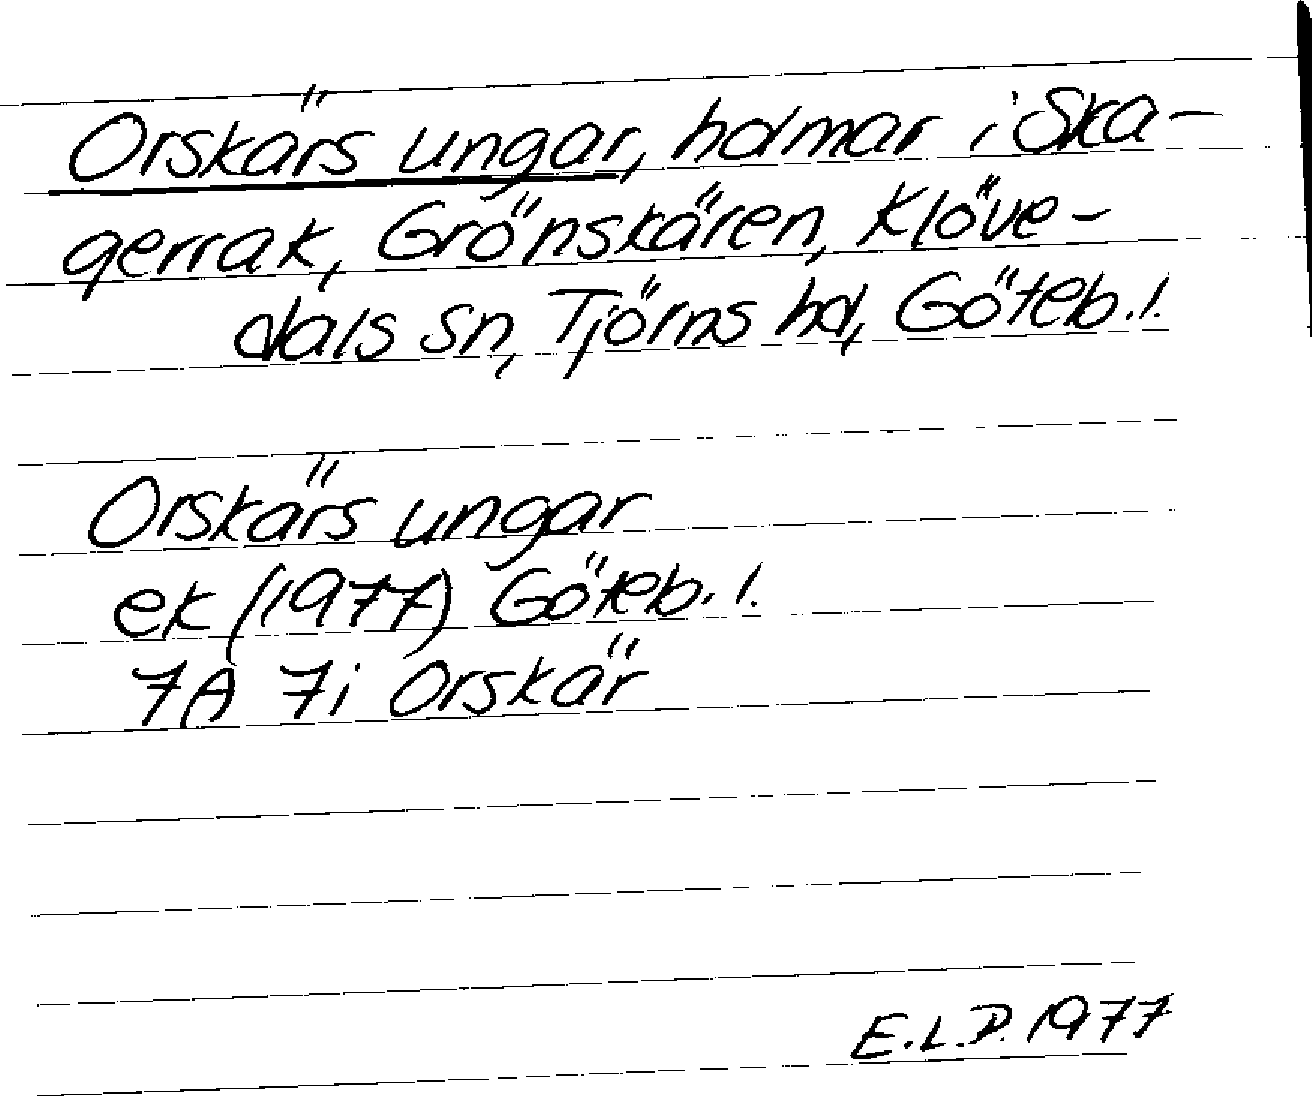 Orskärs ungar, holmar i Ska-
gerrak, Grönskären, Klöve-
dals sn, Tjörns hd, Göteb. l.
Orskärs ungar
ek (1977) Göteb. l.
7A 7i Orskär
E.L.D. 1977